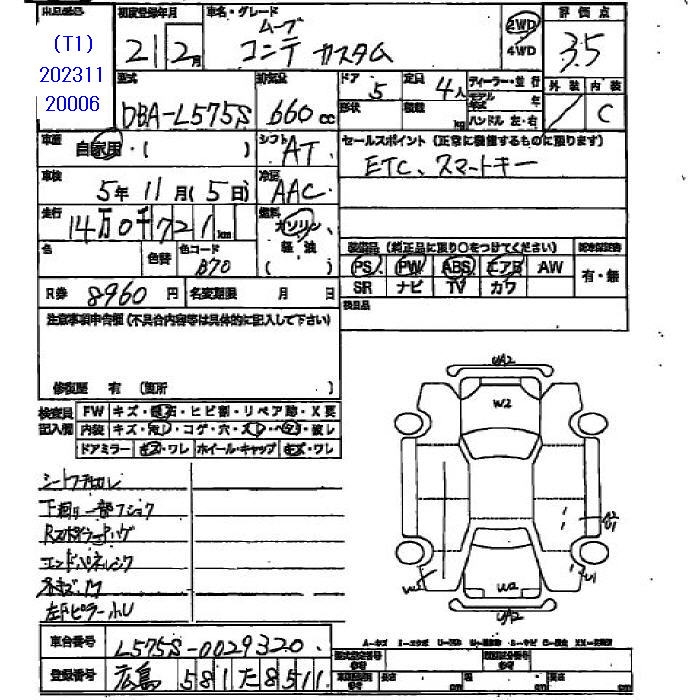 出品番号 初度登録年月 車名・グレード 評価点
(T1) 202311 20006
21 2月 ムーブ コンテ カスタム 2WD 4WD 3.5
型式 排気量 ドア 定員 ディーラー・並行 外装 内装
DBA-L575S 660cc 5 4人 モデル年式 年 C
形状 積載 kg ハンドル 左・右
車歴 自家用・( ) シフト AT
セールスポイント (正常に機能するものに限ります)
ETC、スマートキー
車検 5年 11月 (5日) 冷房 AAC
走行 14万0千721km 燃料 ガソリン、軽油 ( )
色 色替 色コード B70
装備品 (純正品に限り○をつけてください)
PS PW ABS エアB AW 有・無
SR ナビ TV カワ
R券 8960円 名変期限 月 日
注意事項申告欄 (不具合内容等は具体的に記入して下さい)
修復歴 有 (箇所 )
検査員 FW キズ・飛石・ヒビ割・リペア跡・X要
記入欄 内装 キズ・汚レ・コゲ・穴・スレ・ハガレ・破レ
ドアミラー キズ・ワレ ホイール・キャップ キズ・ワレ
シートワナビカレ
下回り一部フショク
エンドパネレンク
左FピラーホU
UA2
W2
U2
U1
W2
UA2
車台番号 L575S-0029320
登録番号 広島 581 た 8511